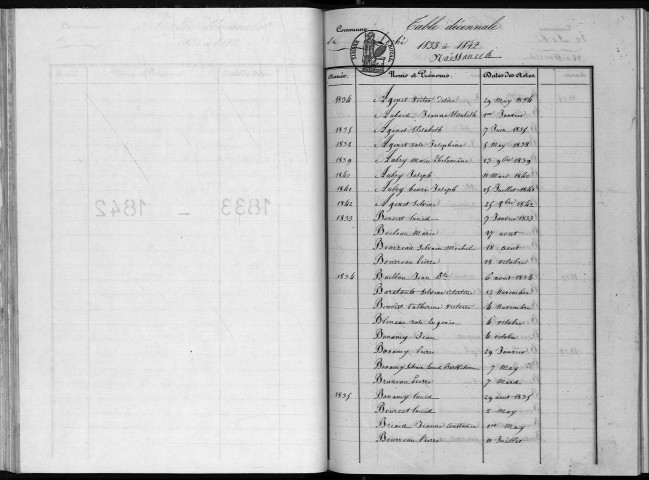 1833 - 1842
Commune
Table décennale
1833 à 1842
Naissances
Année. Noms et Prénoms. Dates des Actes.
1834 Agenet Victor 29 May 1834
Aubard Jeanne Elisabeth 1er Janvier
1835 Agenet Elisabeth 7 Juin 1835
1838 Agenet Joséphine 5 May 1838
1839 Aubry Marie Philomène 13 9bre 1839
1840 Aubry Joseph 11 Mars 1840
1841 Aubry Joseph 15 Juillet 1841
1842 Agenet Silvine 25 9bre 1842
1833 Benoist Louise 7 Janvier 1833
Marie 27 aout
Bourreau Silvain Michel 18 aout
Bourreau Pierre 15 octobre
1834 Baillou Jean Bte 6 aout 1834
Silvine 13 Novembre
Benoist Catherine Victoire 4 Novembre
Eugénie 6 octobre
Bonamy Jean 6 octobre
Bonamy Pierre 29 Janvier
Bonamy Silvain Louis Barthélemi 7 May
Bruneau Pierre 7 Mars
1835 Bonamy Louis 29 aout 1835
Louis 2 May
Bricard Jeanne Constance 1er May
Bourreau Pierre 11 Juillet